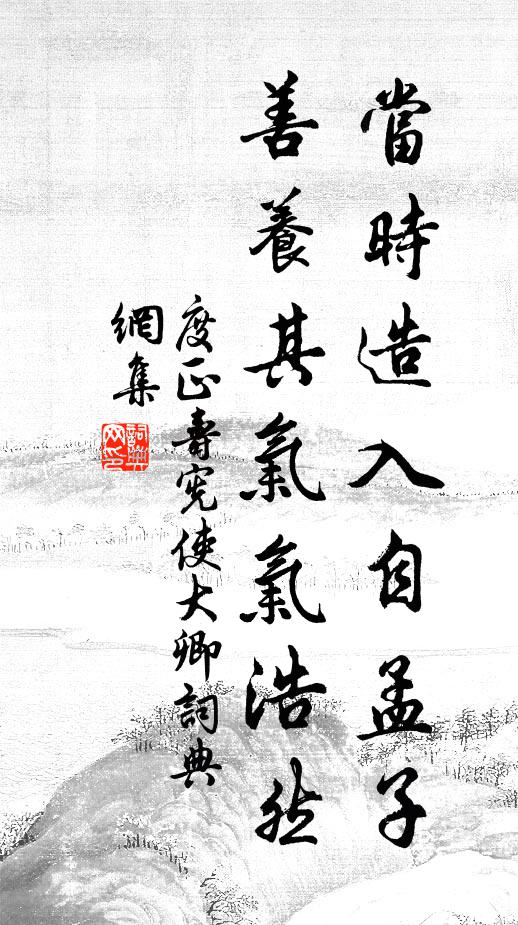 當時造入自孟子
善養其氣氣浩然
度正壽宪使大卿詞典
網集
詞典網印